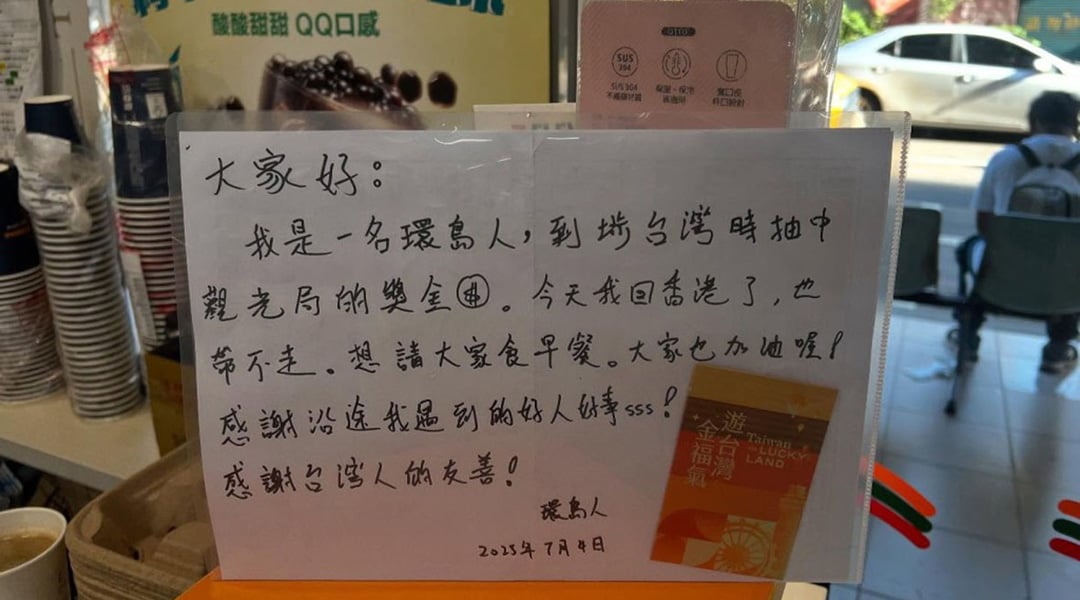 酸酸甜甜 QQ口感
SUS
304
SUS304
大家好：
我是一名環島人，到埗台灣時抽中
觀光局的獎金。今天我回香港了，也
帶不走。想請大家食早餐。大家也加油喔！
感謝沿途我遇到的好人好事sss！
感謝台灣人的友善！
環島人
2025年7月4日
遊台灣
金福氣
Taiwan
the LUCKY
LAND